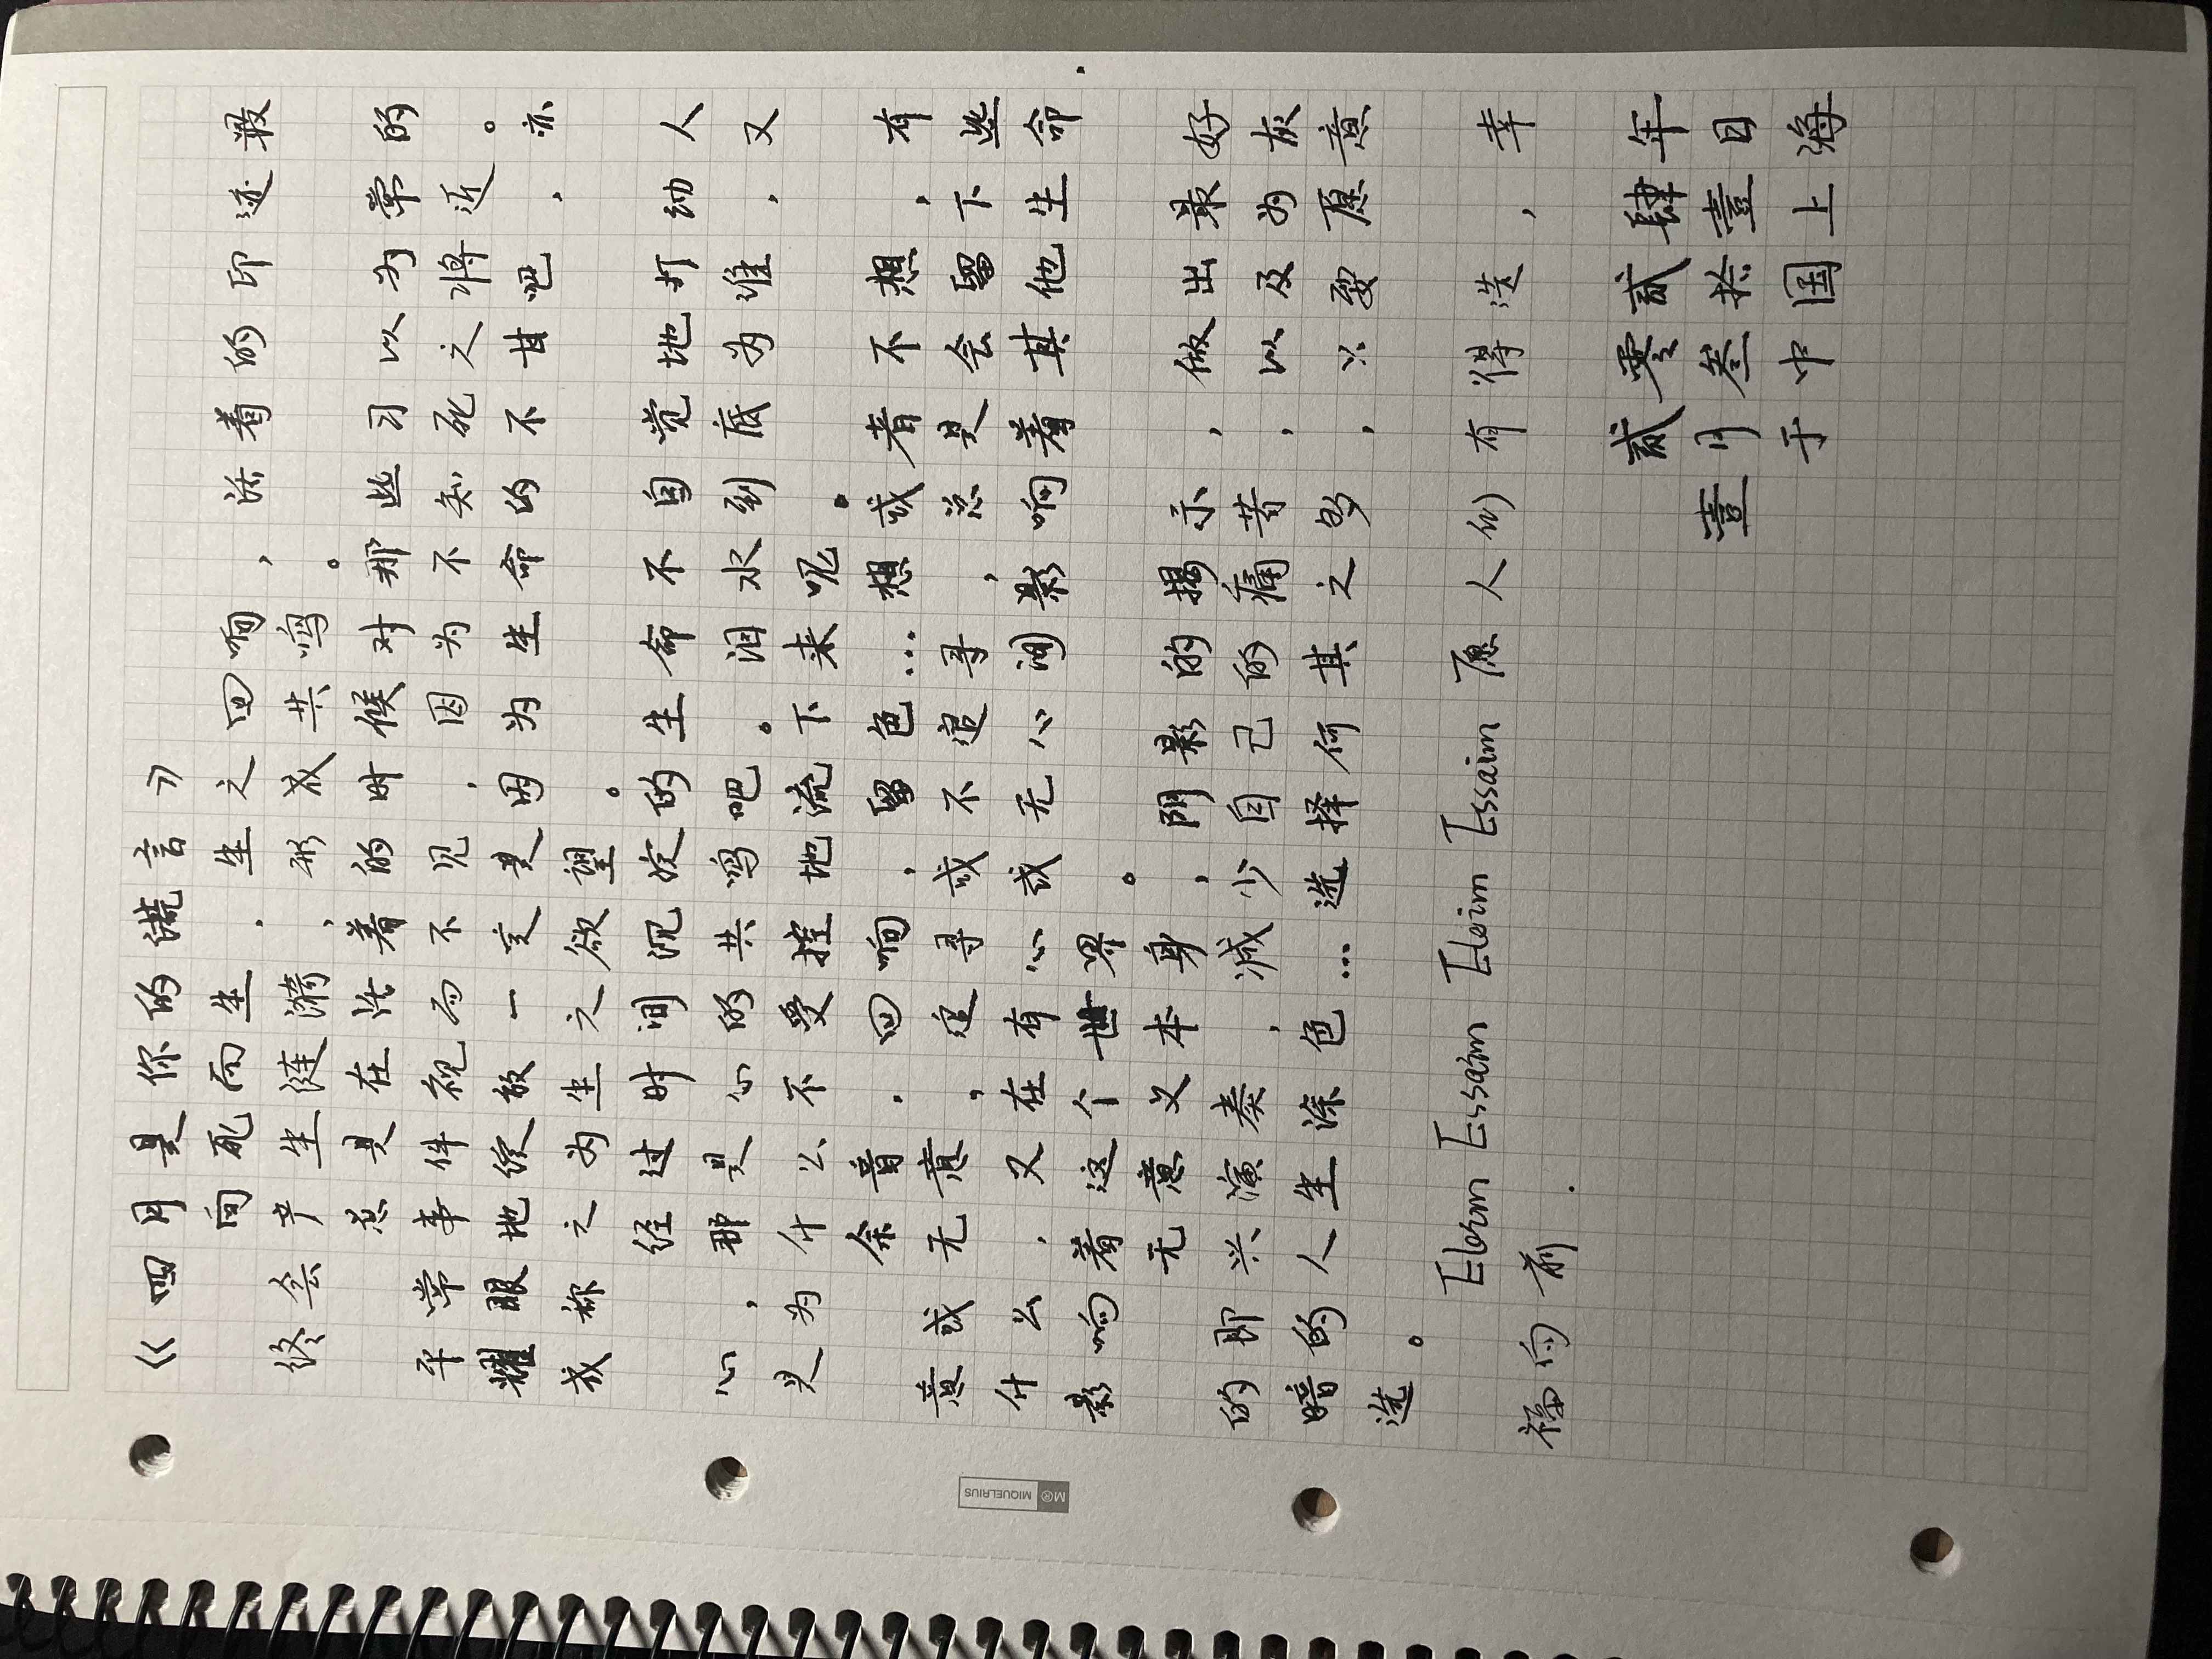 《四月是你的谎言》
向死而生，生之回响，活着的印迹最
终会产生涟漪，形成共鸣。
总是在活着的时候对那些习以为常的
平常事件视而不见，因为不知死之将近。亦
耀眼地绽放一定是因为生命的不甘吧，
我称之为生之欲望。
经过时间沉淀的生命不自觉地打动人
心，那是心的共鸣吧。泪水到底为谁，又
是为什么不受控地流下来呢。
余音，回响，留色…想或者不想，有
意或无意，追寻或不追寻，总是会留下些
什么，又在有心或无心间影响着其他生命
影响着这个世界。
无意义本身，阴影的揭示，做出最好
的即兴演奏，减少自己的痛苦，以及为灰
暗的人生涂色…选择何其之多，只要愿意
选。
Eloim Essaim Eloim Essaim 愿人(们)有得选，幸
福向前.
贰零贰肆年
壹月叁拾壹日
于中国上海
M® MIQUELRIUS